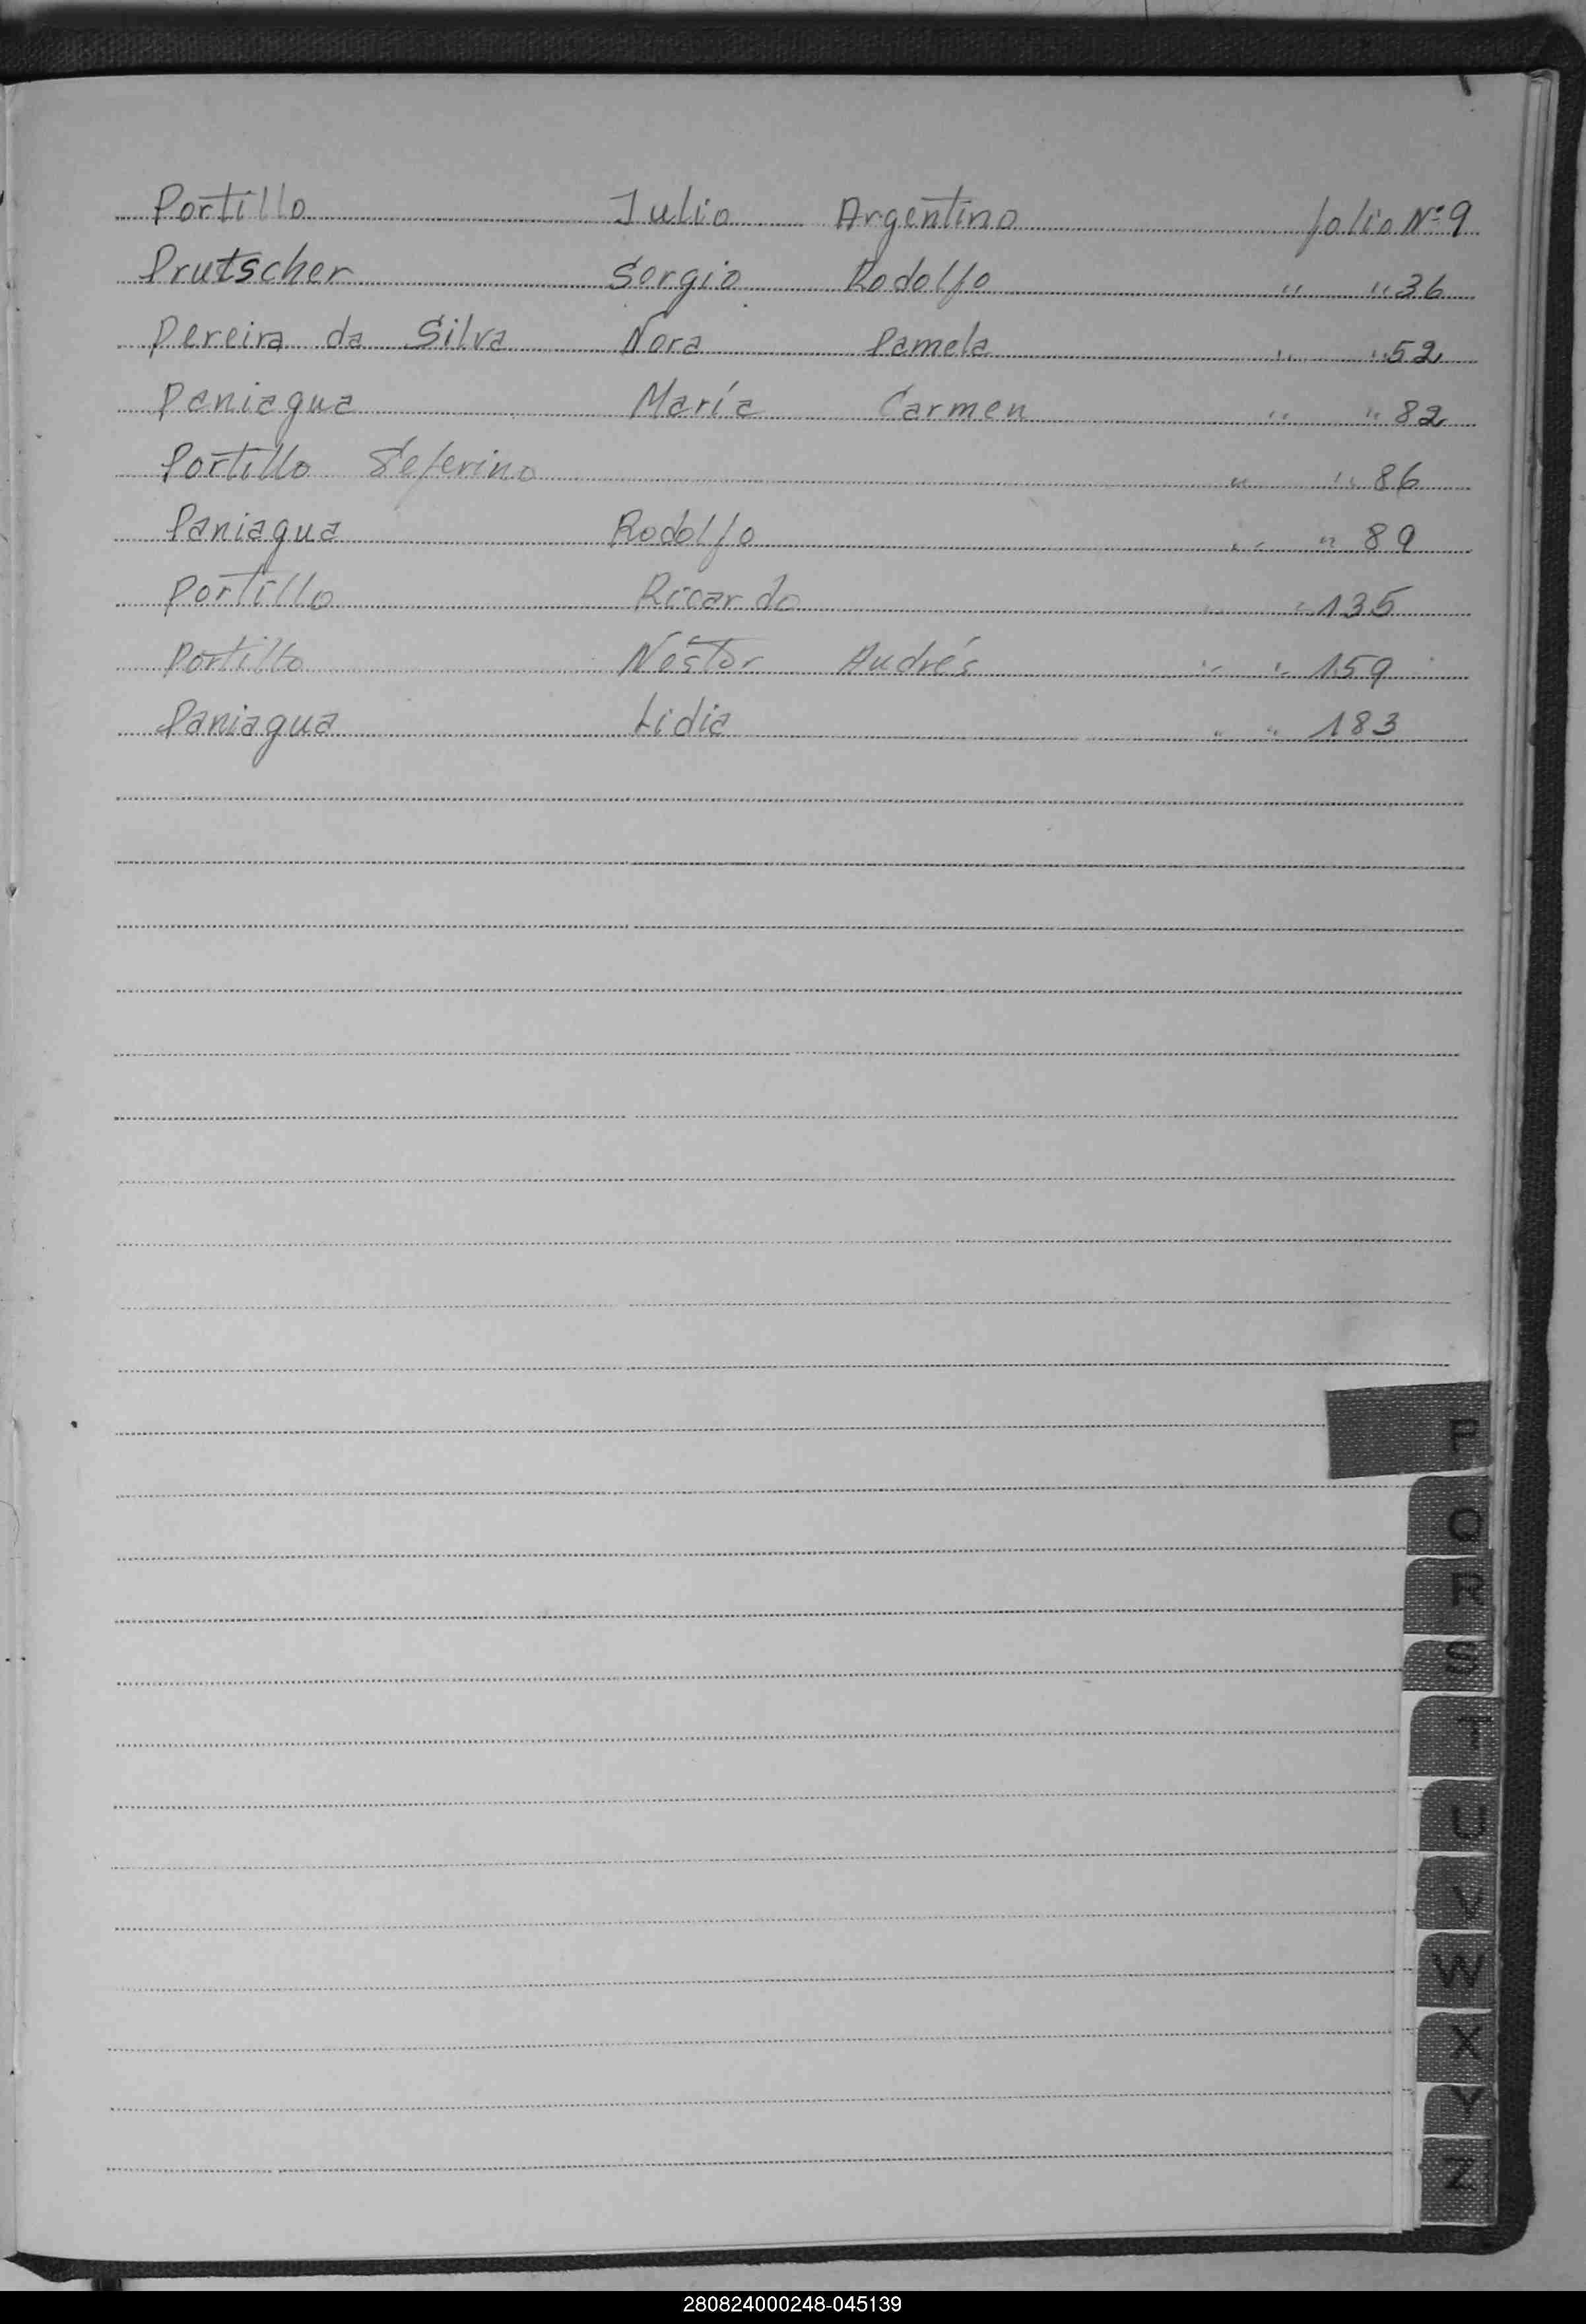 Portillo Julio Argentino folio Nº 9
Prutscher Sergio Rodolfo " " 36
Pereira da Silva Nora Pamela " " 52
Paniagua María Carmen " " 82
Portillo Seferino " " 86
Paniagua Rodolfo " " 89
Portillo Ricardo " " 135
Portillo Néstor Andrés " " 159
Paniagua Lidia " " 183
P
Q
R
S
T
U
V
W
X
Y
Z
280824000248-045139